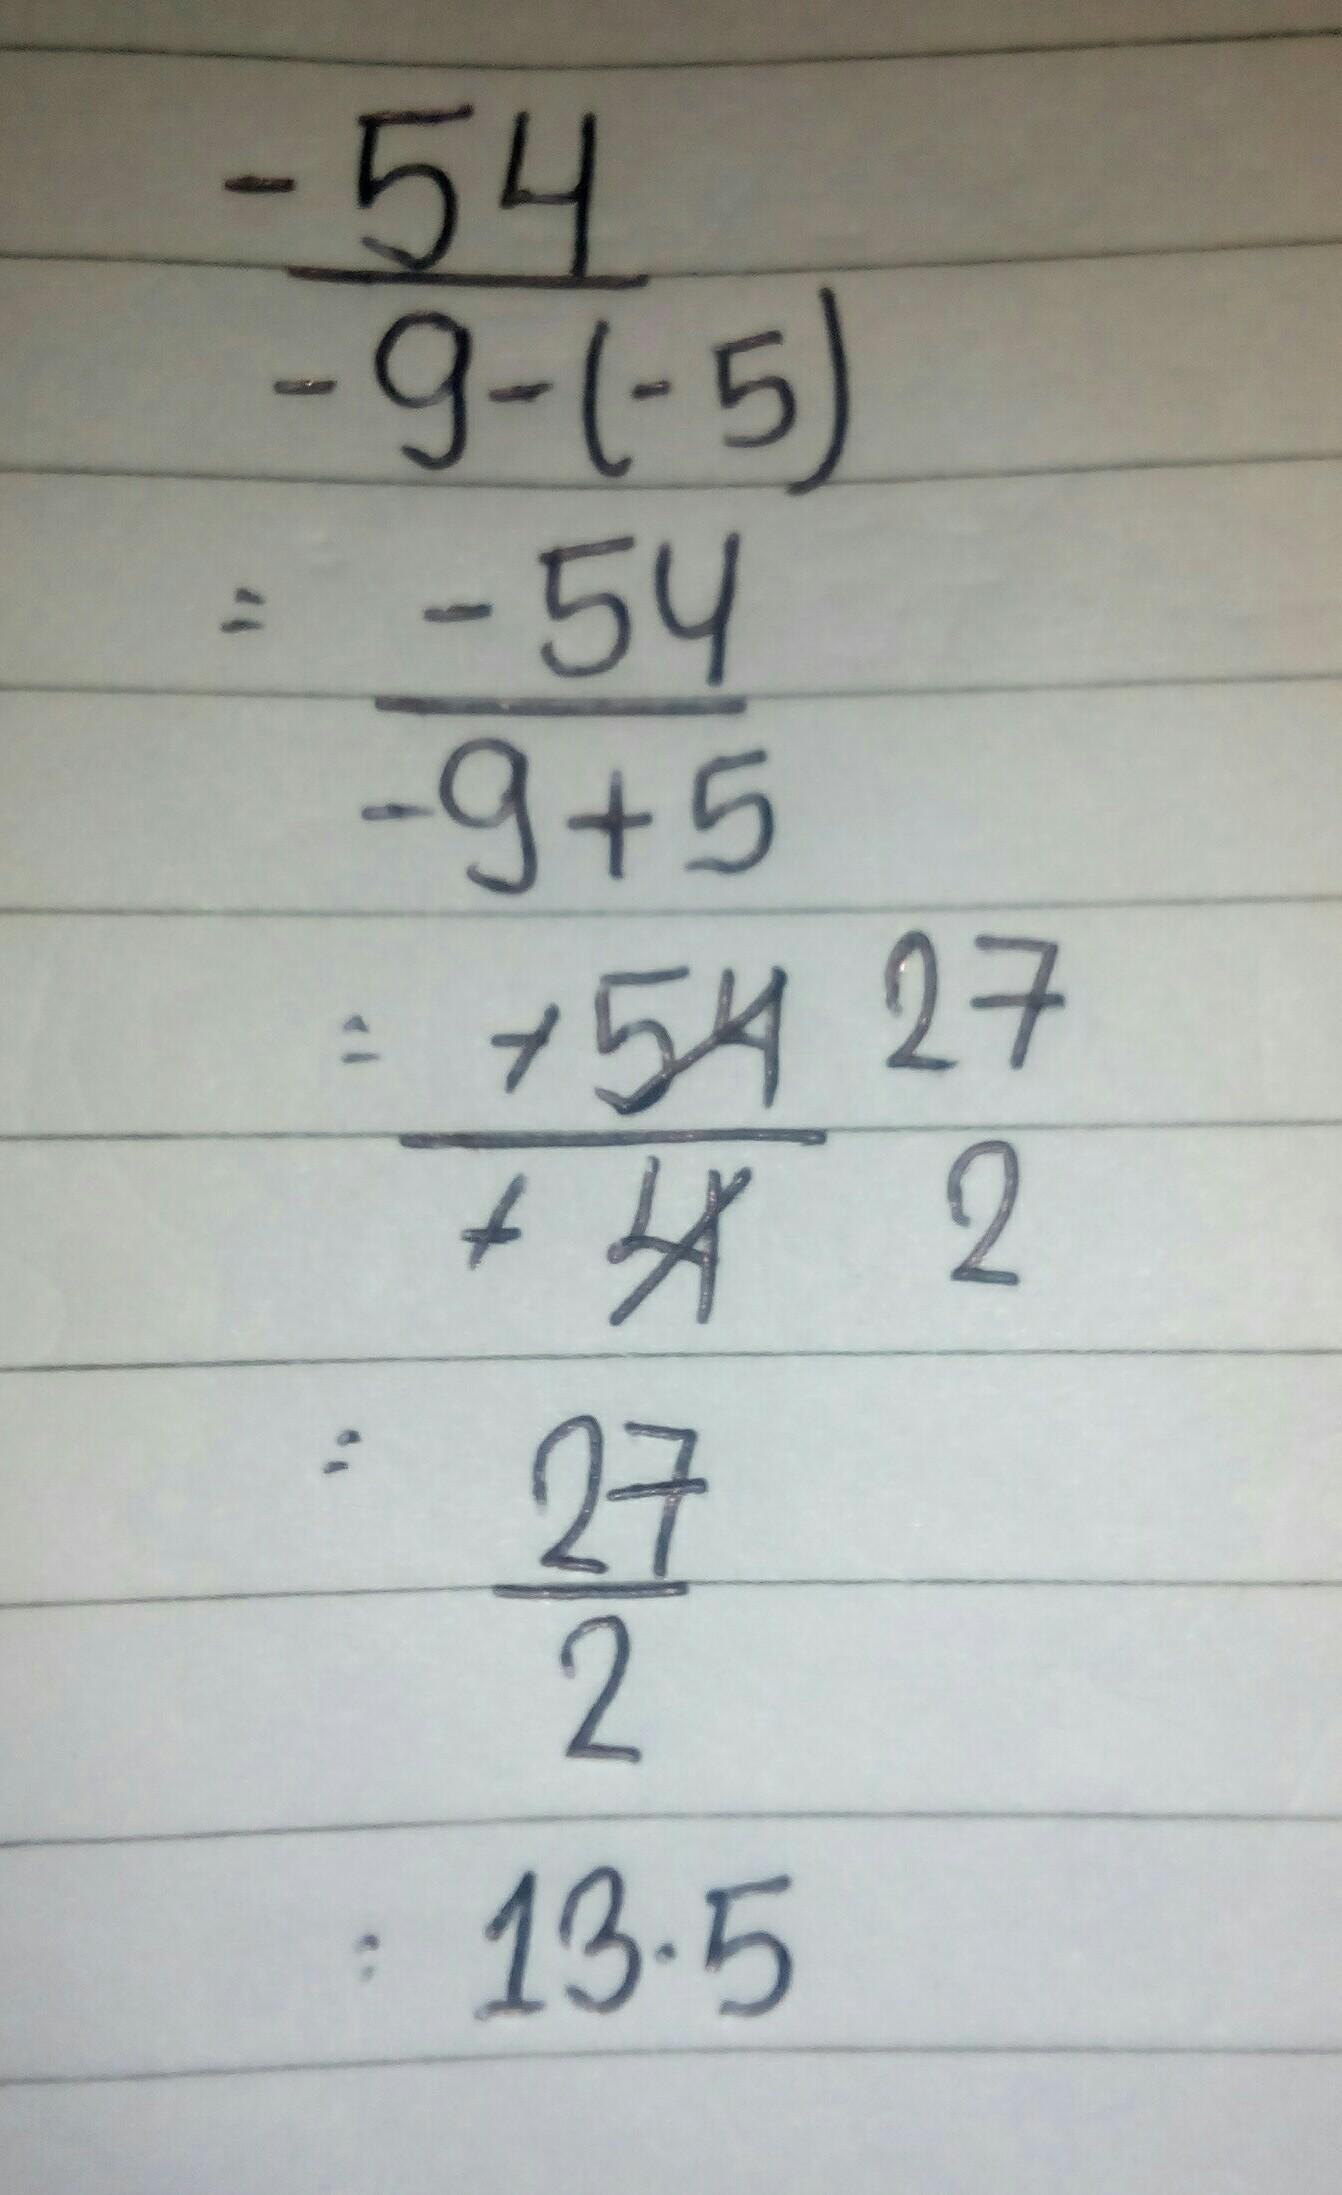 -54
-9-(-5)
= -54
-9+5
= -54 27
-4 2
= 27
2
= 13.5